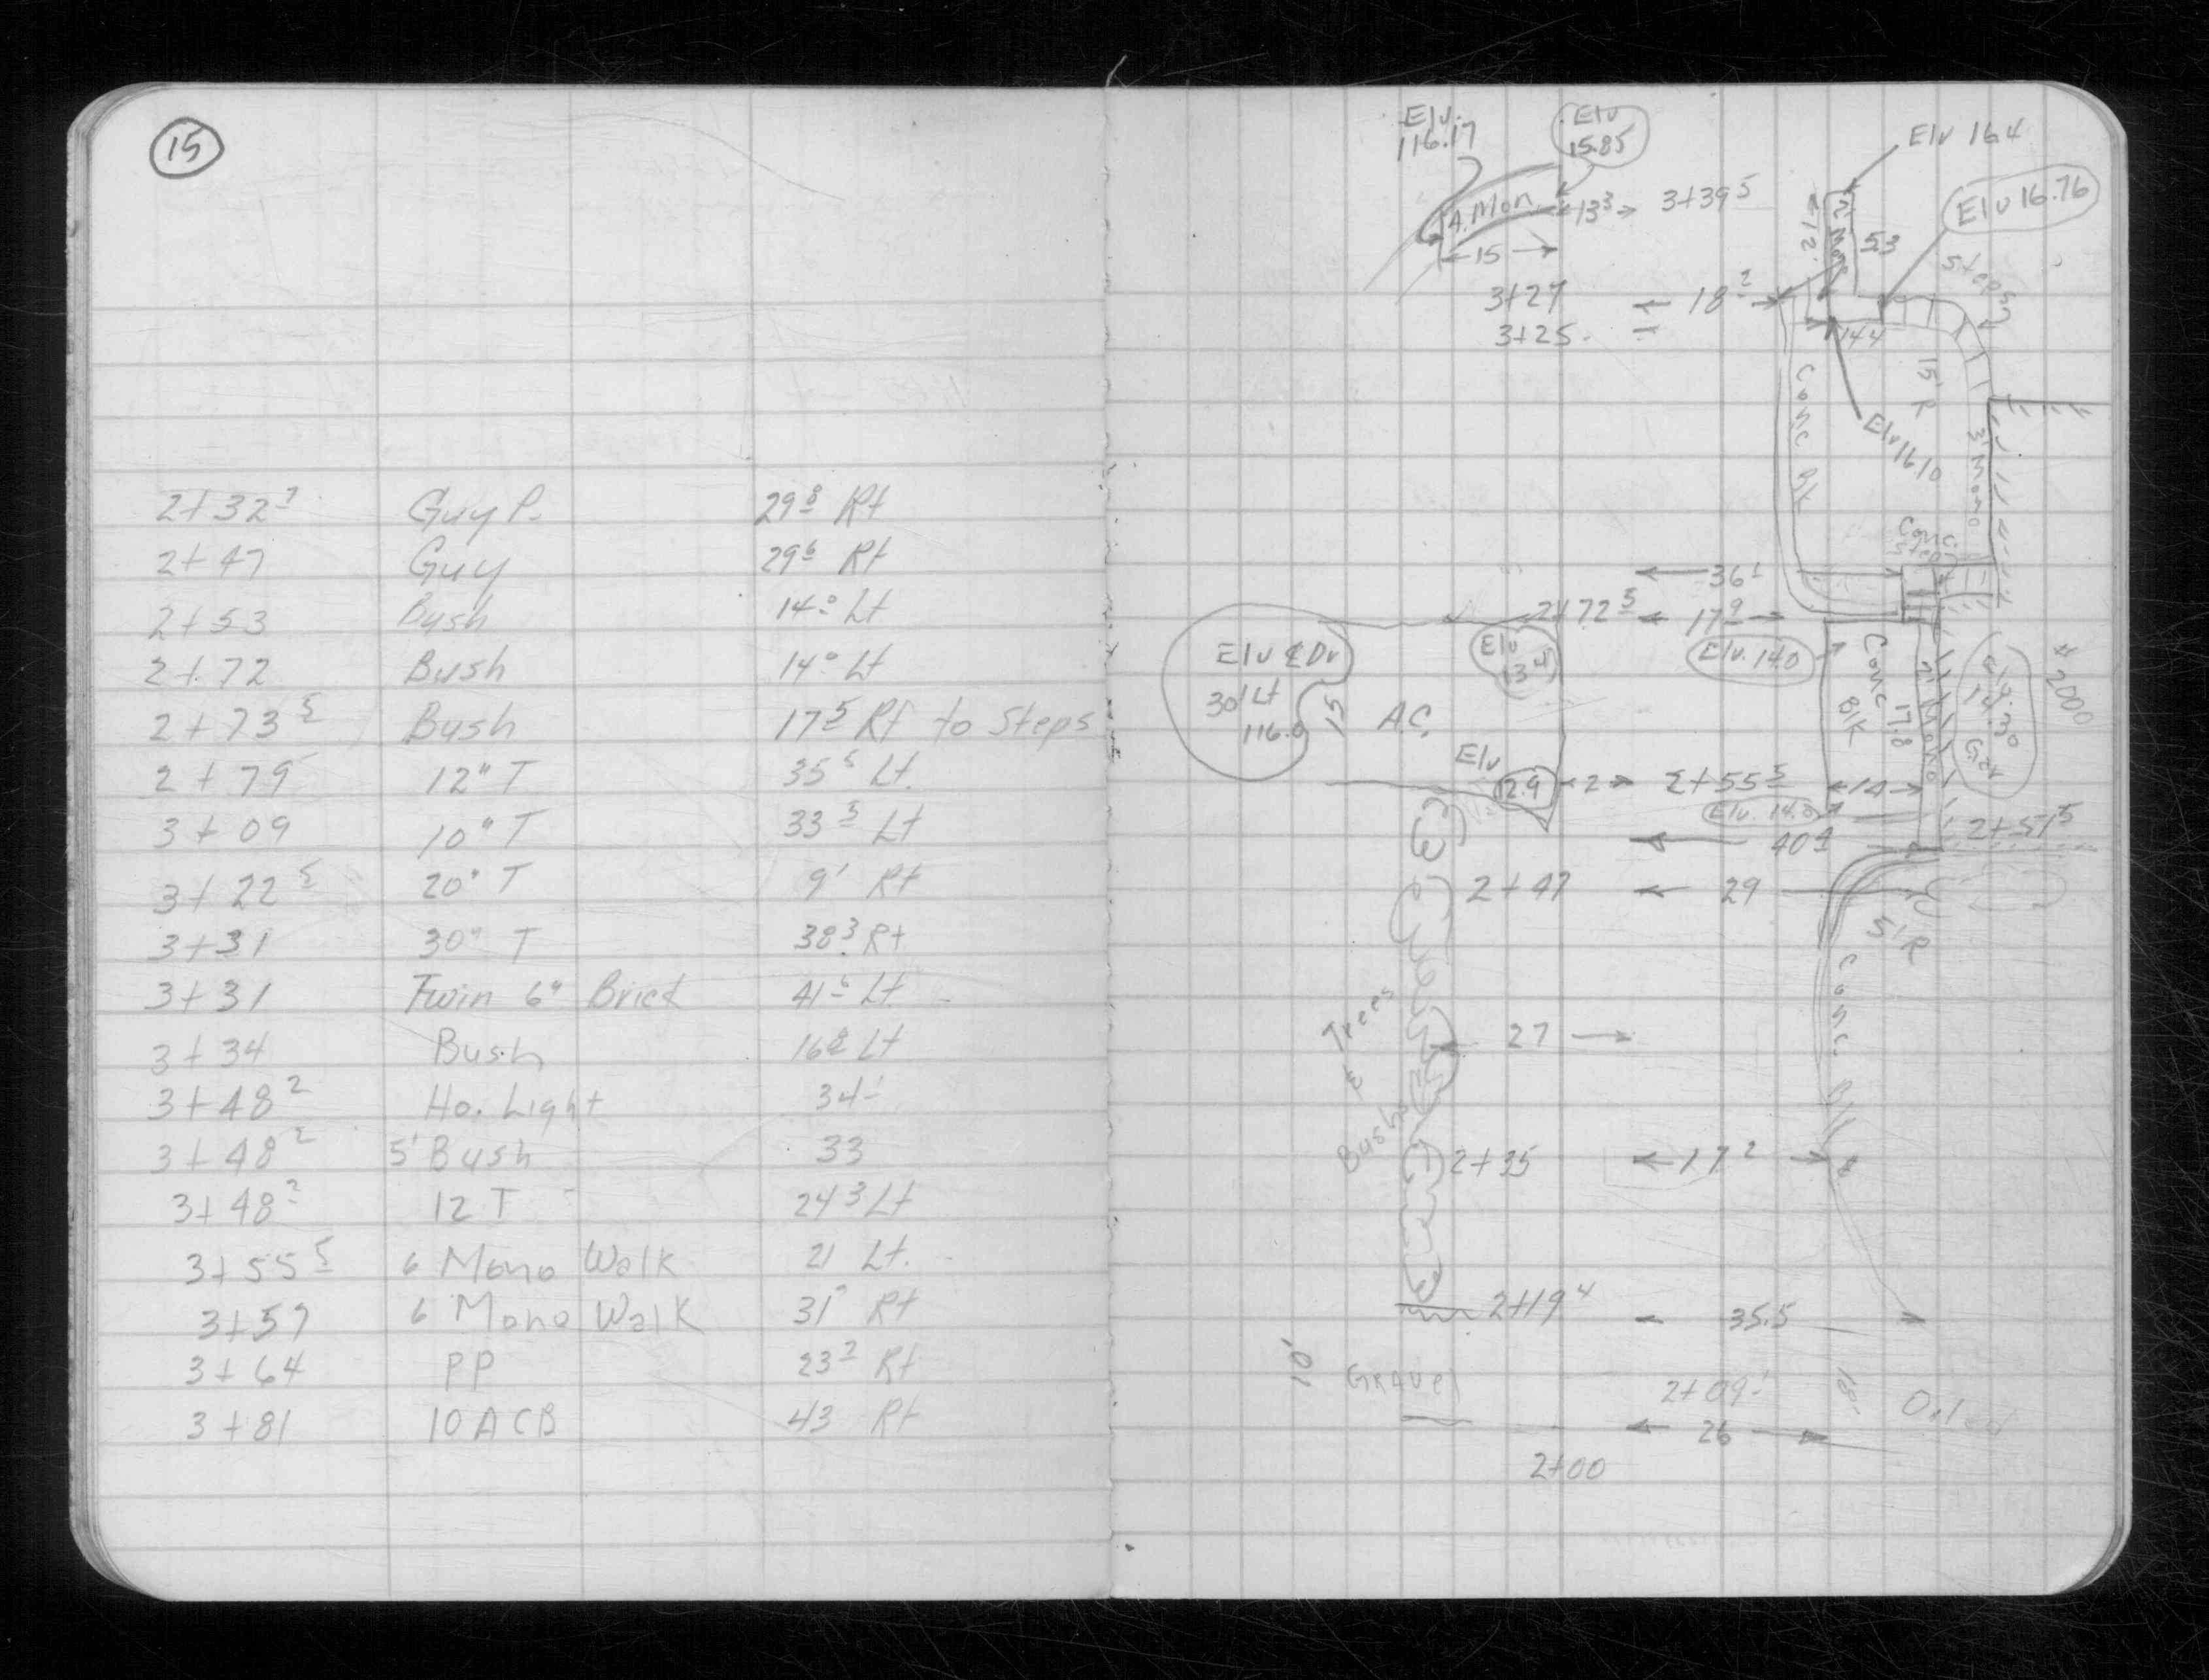 15
2+32⁷ Guy P. 29⁸ Rt
2+47 Guy 29⁶ Rt
2+53 Bush 14⁰ Lt
2+72 Bush 14⁰ Lt
2+73⁵ Bush 17⁵ Rt to Steps
2+79 12" T 35⁵ Lt.
3+09 10" T 33⁵ Lt
3+22⁵ 20" T 9' Rt
3+31 30" T 38³ Rt
3+31 Twin 6" Brick Lt
3+34 Bush 16⁸ Lt
3+48² Ho. Light 34¹
3+48² 5' Bush 33
3+48² 12 T 24³ Lt
3+55⁵ 6 Mono Walk 21 Lt.
3+57 6 Mono Walk 31⁰ Rt
3+64 PP 23² Rt
3+81 10 ACB 43 Rt
Elv. 116.17
Elv 15.85
Elv 16.4
Elv 16.76
Mon.
13³
3+39⁵
12
53
Steps
15
3+27
18²
3+25
14.4
15' R
Conc Blk
Elv 16.10
3' Mono
Conc. Steps
36¹
2+72⁵
17⁹
Elv ₵ Dr
30' Lt
116.
15
A.C.
Elv
13.4
Elv. 14.0
Conc Blk
17.8
Mono
14.30
2000
Elv
12.9
2
2+55⁵
14
2+51⁵
40⁴
2+47
29
5' R
Conc. Blk
Trees & Bushes
27
2+35
17²
2+19⁴
35.5
10'
Gravel
2+09¹
18
Oiled
26
2+00